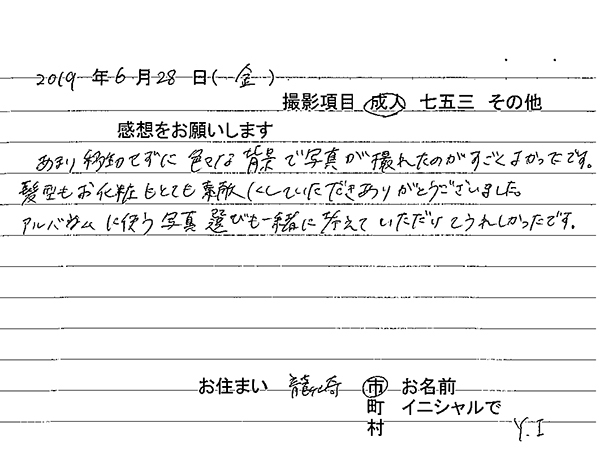 2019 年 6 月 28 日(金)
撮影項目 成人 七五三 その他
感想をお願いします
あまり移動せずに色々な背景で写真が撮れたのがすごくよかったです。
髪型もお化粧もとても素敵にしていただきありがとうございました。
アルバムに使う写真選びも一緒に考えていただけてうれしかったです。
お住まい 龍ヶ崎 市 お名前
町 イニシャルで
村 Y.I